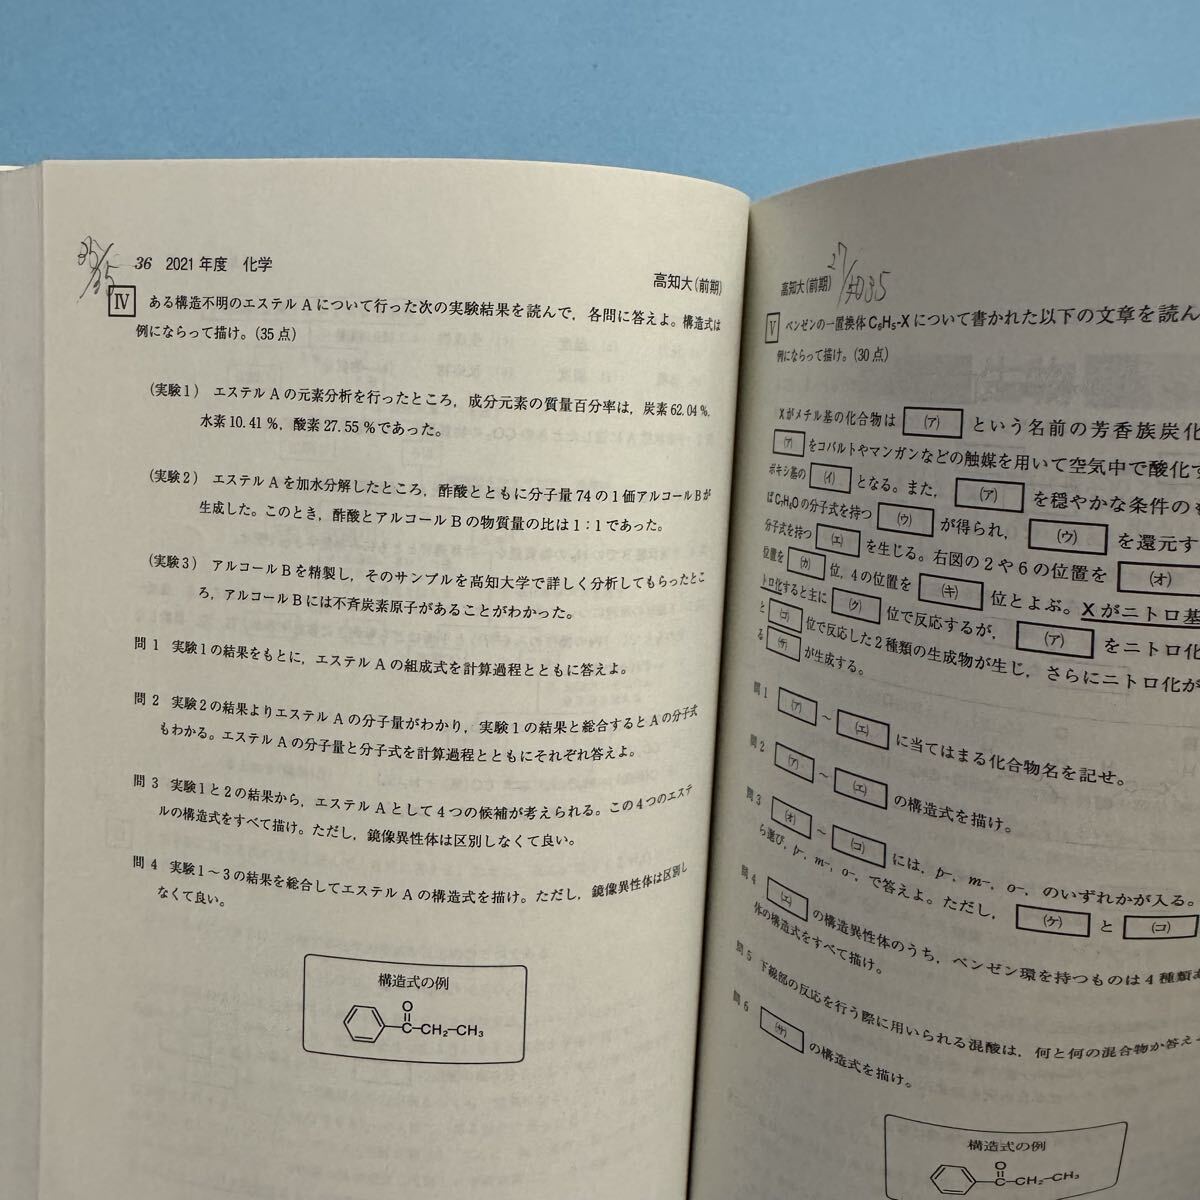 35/35
36 2021年度 化学
高知大(前期)
IV ある構造不明のエステルAについて行った次の実験結果を読んで,各問に答えよ。構造式は
例にならって描け。(35点)
(実験1) エステルAの元素分析を行ったところ,成分元素の質量百分率は,炭素62.04%,
水素10.41%,酸素27.55%であった。
(実験2) エステルAを加水分解したところ,酢酸とともに分子量74の1価アルコールBが
生成した。このとき,酢酸とアルコールBの物質量の比は1:1であった。
(実験3) アルコールBを精製し,そのサンプルを高知大学で詳しく分析してもらったとこ
ろ,アルコールBには不斉炭素原子があることがわかった。
問1 実験1の結果をもとに,エステルAの組成式を計算過程とともに答えよ。
問2 実験2の結果よりエステルAの分子量がわかり,実験1の結果と総合するとAの分子式
もわかる。エステルAの分子量と分子式を計算過程とともにそれぞれ答えよ。
問3 実験1と2の結果から,エステルAとして4つの候補が考えられる。この4つのエステ
ルの構造式をすべて描け。ただし,鏡像異性体は区別しなくて良い。
問4 実験1~3の結果を総合してエステルAの構造式を描け。ただし,鏡像異性体は区別し
なくて良い。
構造式の例
O
C-CH2-CH3
高知大(前期)
V ベンゼンの一置換体C6H5-Xについて書かれた以下の文章を読ん
例にならって描け。(30点)
Xがメチル基の化合物は (ア) という名前の芳香族炭化
(ア) をコバルトやマンガンなどの触媒を用いて空気中で酸化す
ボキシ基の (イ) となる。また, (ア) を穏やかな条件のも
ばC7H6Oの分子式を持つ (ウ) が得られ, (ウ) を還元す
分子式を持つ (エ) を生じる。右図の2や6の位置を (オ)
位置を (カ) 位,4の位置を (キ) 位とよぶ。Xがニトロ基
トロ化すると主に (ク) 位で反応するが, (ア) をニトロ化
と (コ) 位で反応した2種類の生成物が生じ,さらにニトロ化が
る (サ) が生成する。
問1 (ア) ~ (エ) に当てはまる化合物名を記せ。
問2 (ア) ~ (エ) の構造式を描け。
問3 (オ) ~ (コ) には,p-,m-,o-,のいずれかが入る。
ら選び,p-,m-,o-,で答えよ。ただし, (ケ) と (コ)
問4 (エ) の構造異性体のうち,ベンゼン環を持つものは4種類あ
体の構造式をすべて描け。
問5 下線部の反応を行う際に用いられる混酸は,何と何の混合物か答え
問6 (サ) の構造式を描け。
構造式の例
O
C-CH2-CH3